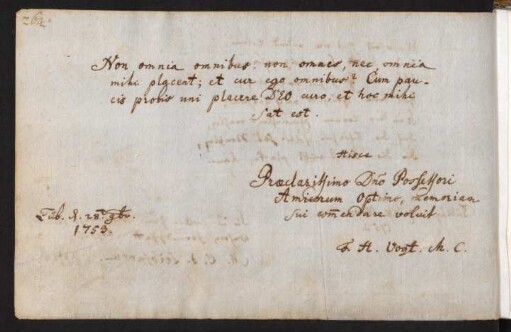 262.
Non omnia omnibus: non omnes, nec omnia
mihi placent; et cur ego omnibus? Cum pau-
cis probis uni placere DEO curo, et hoc mihi
sat est.
Hisce
Præclarissimo Dno Possessori
Amicorum Optimo, memoriam
sui com̄endare voluit
Tub. d.
1753.
Vogt. M. C.